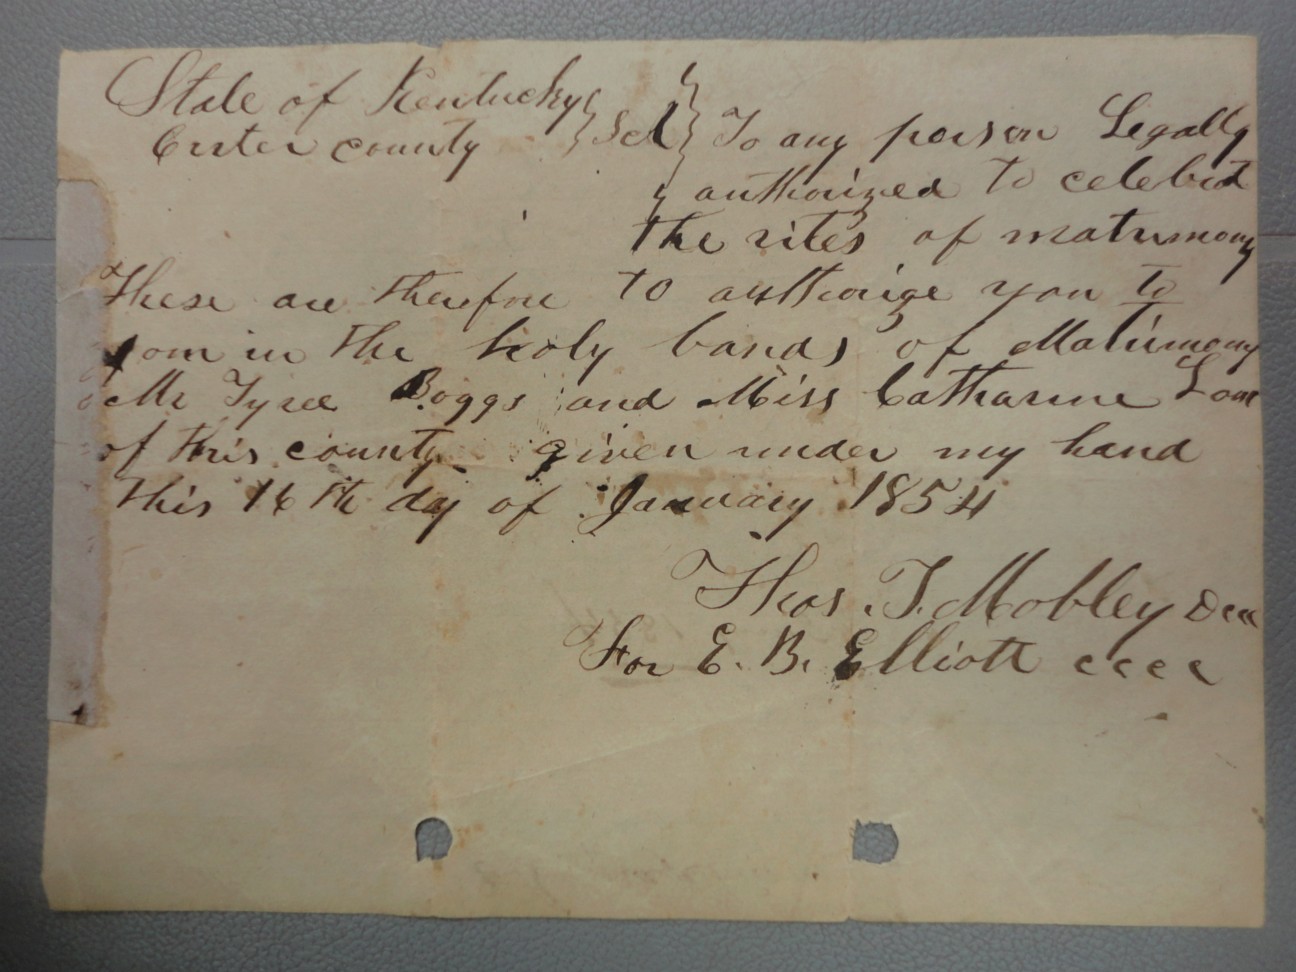 State of Kentucky } Sct } To any person Legally
Carter county } authorized to celebrat
the rites of matrimony
These are therefore to authorize you to
join in the holy bands of Matrimony
Mr Tyree Boggs and Miss Catharine
of this county given under my hand
this 16th day of January 1854
Thos. T. Mobley
For E. B. Elliott cccc